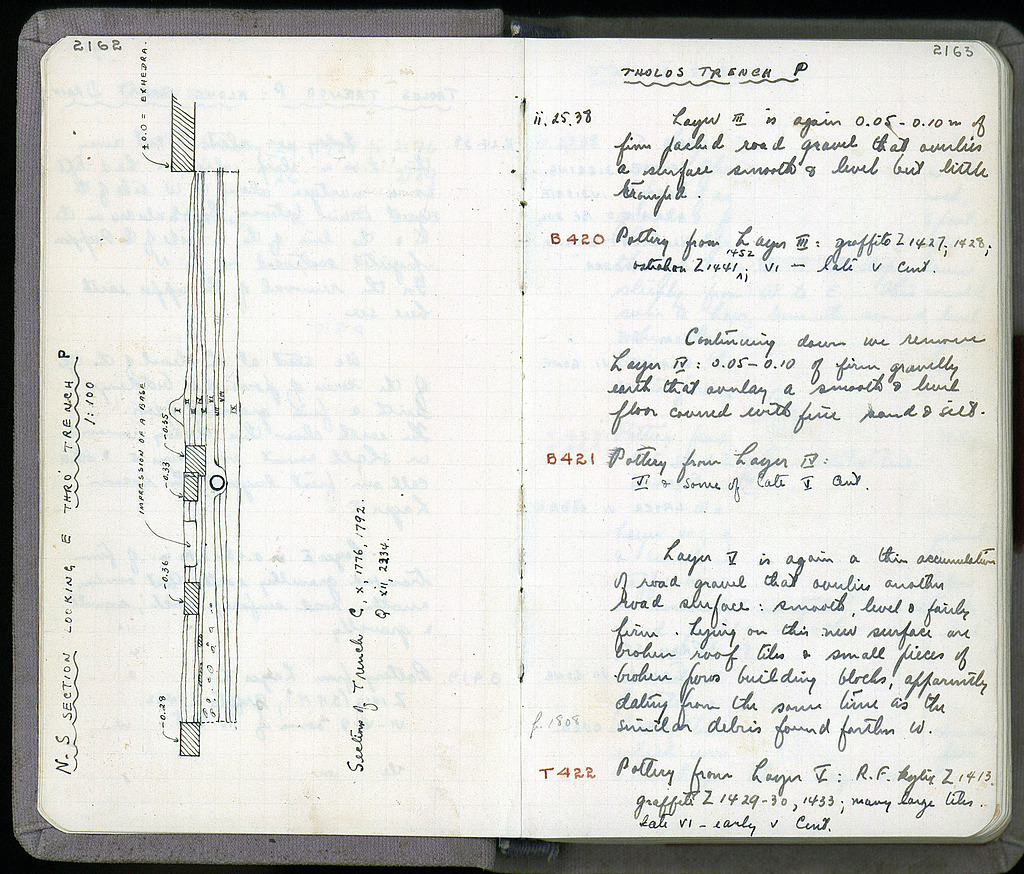 2162
±0.0 = EXHEDRA.
N-S SECTION LOOKING E THRO TRENCH P
1:100
IMPRESSION OF A BASE
-0.55
-0.33
-0.36
-0.28
II III IV V VI VII VIII IX
Section of Trench C, X, 1776, 1792.
Q XII, 2234.
2163
THOLOS TRENCH P
ii.25.38 Layer III is again 0.05-0.10 m of
firm packed road gravel that overlies
a surface smooth & level but little
tramped.
B420 Pottery from Layer III: graffito Z 1427, 1428;
ostrakon Z 1441, 1452; VI - late V Cent.
Continuing down we remove
Layer IV: 0.05-0.10 of firm gravelly
earth that overlay a smooth & level
floor covered with fine sand & silt.
B421 Pottery from Layer IV:
VI & some of late V Cent.
Layer V is again a thin accumulation
of road gravel that overlies another
road surface: smooth, level & fairly
firm. Lying on this new surface are
broken roof tiles & small pieces of
broken poros building blocks, apparently
dating from the same time as the
similar debris found farther W.
f. 1808
T422 Pottery from Layer V: R.F. kylix Z 1413
graffiti Z 1429-30, 1433; many large tiles.
Late VI - early V Cent.